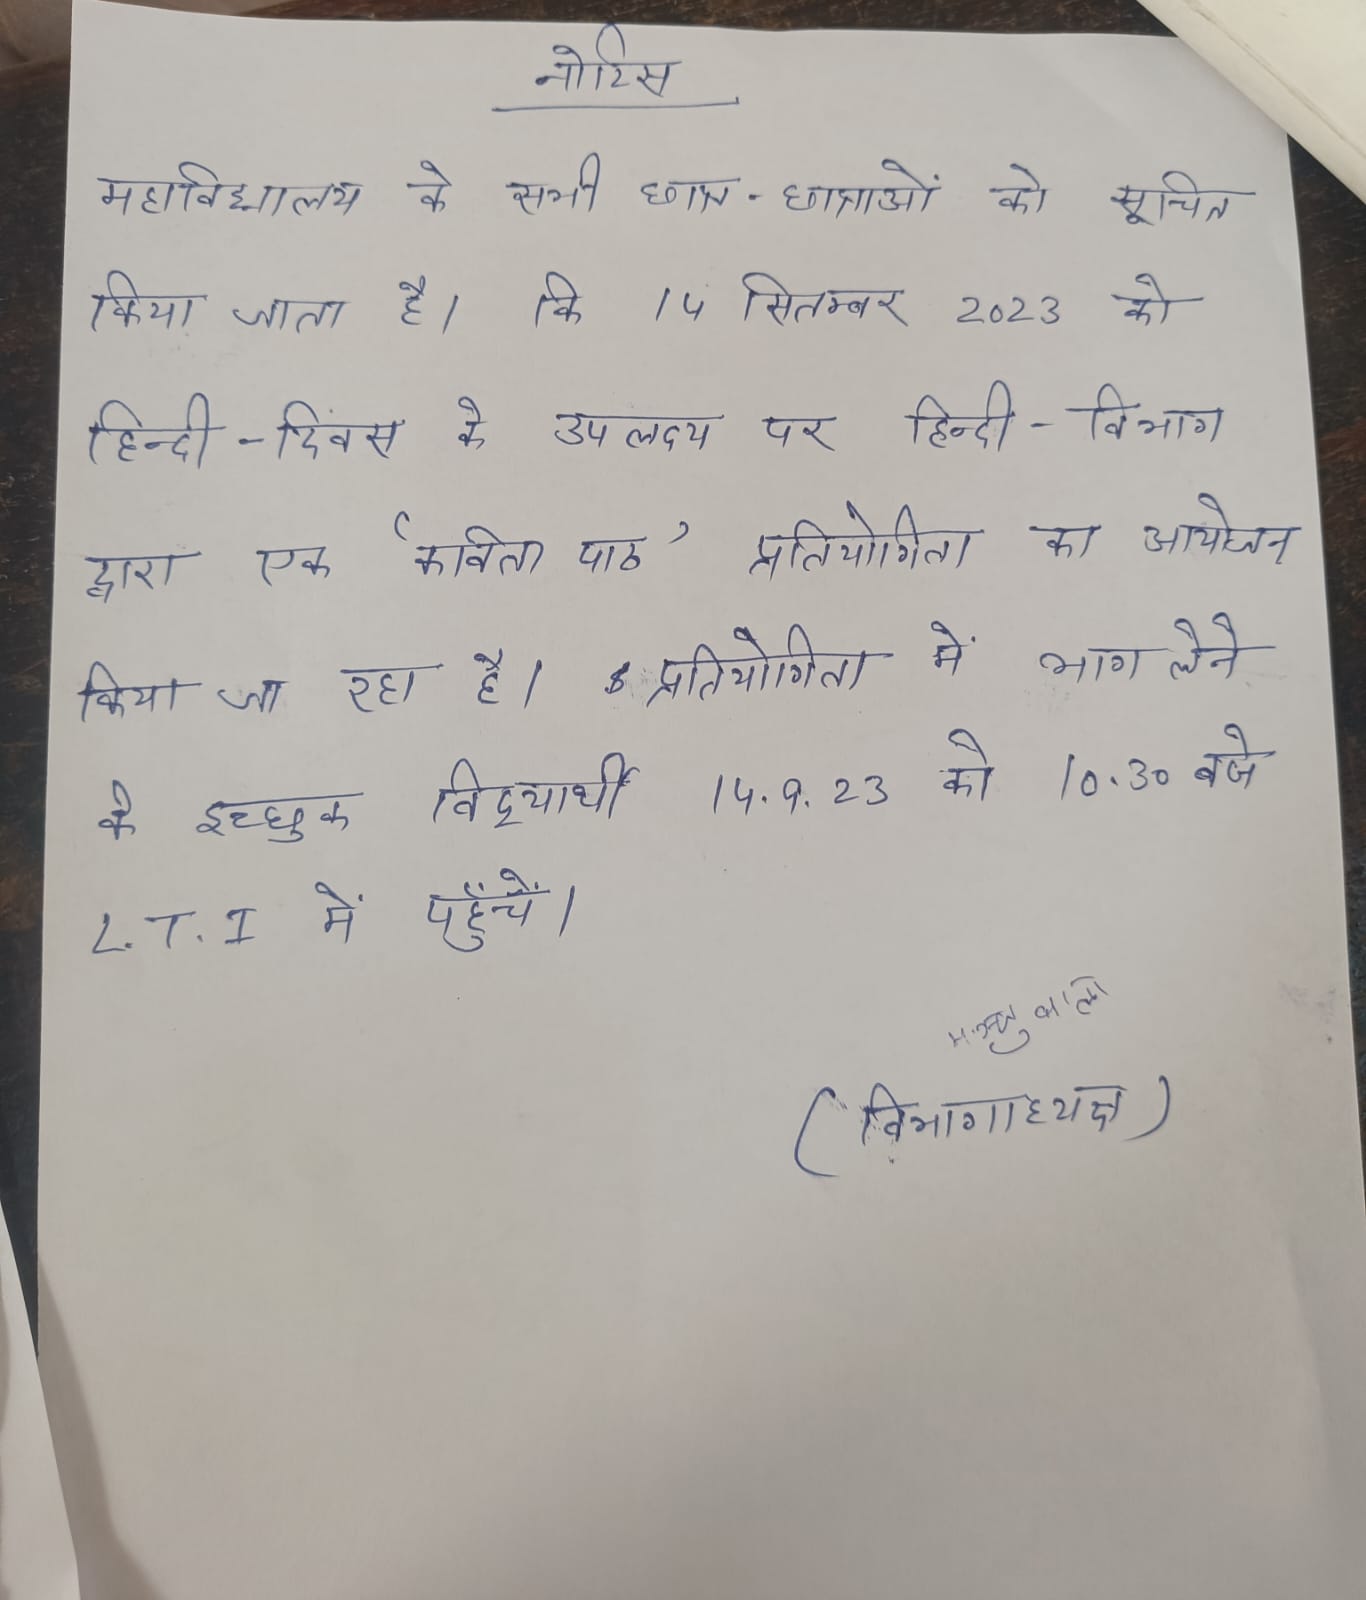 नोटिस
महाविद्यालय के सभी छात्र - छात्राओं को सूचित
किया जाता है। कि 14 सितम्बर 2023 को
हिन्दी - दिवस के उपलक्ष्य पर हिन्दी - विभाग
द्वारा एक 'कविता पाठ' प्रतियोगिता का आयोजन
किया जा रहा है। प्रतियोगिता में भाग लेने
के इच्छुक विद्यार्थी 14.9.23 को 10.30 बजे
L.T.I में पहुँचें।
बाला
(विभागाध्यक्ष)